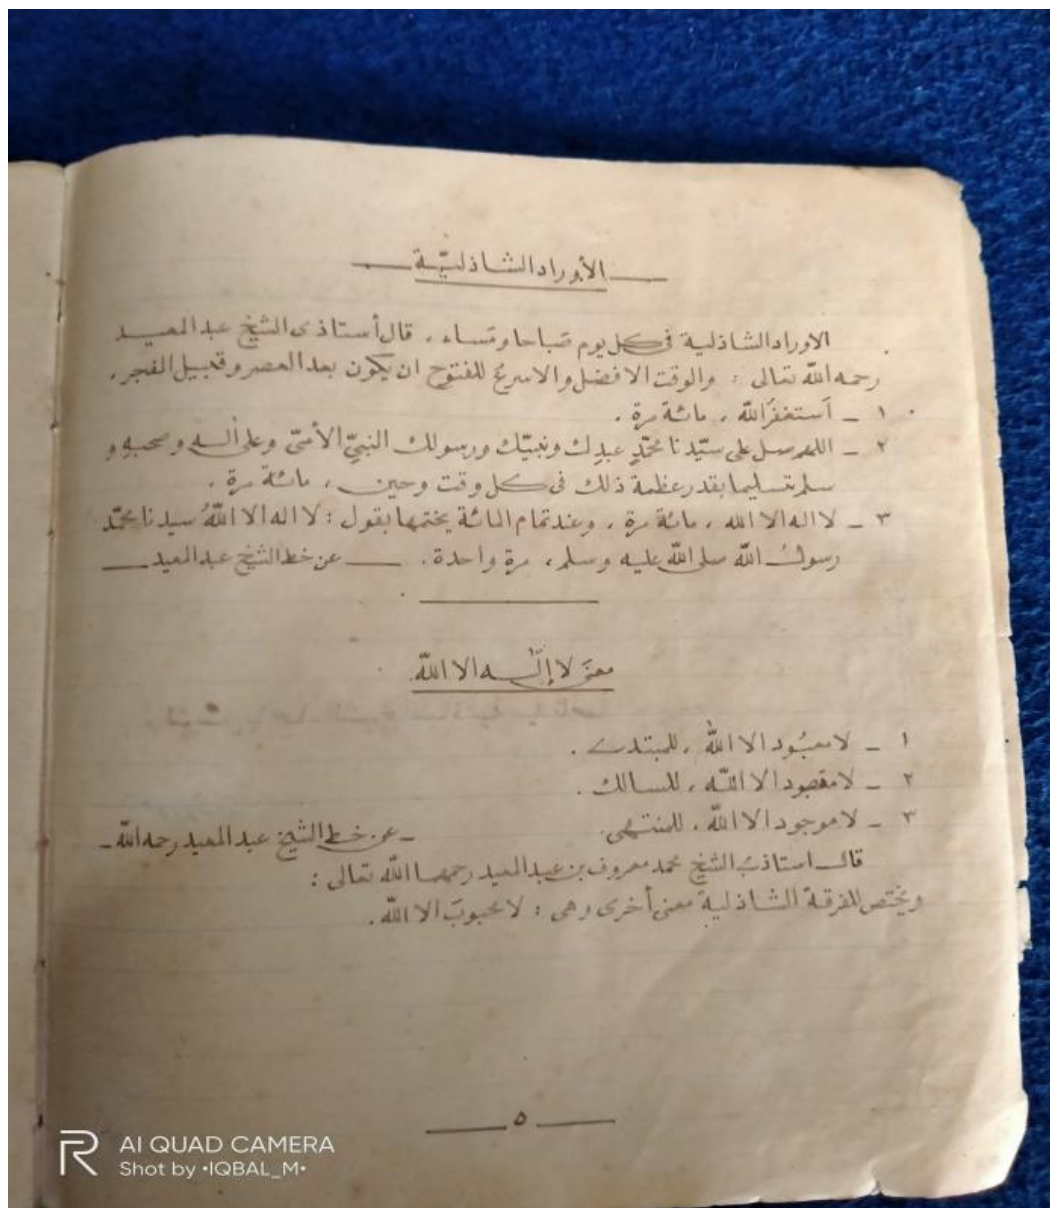 الأوراد الشاذليّة
الاوراد الشاذلية فى كل يوم صَباحا ومَساء، قال أستاذى الشيخ عبد المعيد
رحمه اللّه تعالى : والوقت الافضل والاسرع للفتوح ان يكون بعد العصر وقبيل الفجر.
١ - اَستغفرُ اللّه، مائة مرة.
٢ - اللهم صل على سيّدنا محمّدٍ عبدِك ونبيّك ورسولك النبىّ الأمىّ وعلى أله وصحبهِ و
سلم تسليما بقدر عظمة ذلك فى كل وقت وحين، مائة مرة.
٣ - لا اله الا الله، مائة مرة، وعند تمام المائة يختمها بقول : لا اله الا اللّهُ سيدنا محمّد
رسولُ اللّه صلى اللّه عليه وسلم، مرة واحدة. عن خط الشيخ عبد المعيد
معنَى لا إلٰه الا اللّه
١ - لا معبُود الا اللّه، للمبتدى.
٢ - لا مقصود الا اللّه، للسالك.
٣ - لا موجود الا اللّه، للمنتهى. - عن خط الشيخ عبد المعيد رحمه اللّه -
قال استاذى الشيخ محمد معروف بن عبد المعيد رحمهما اللّه تعالى :
ويختص للفرقة الشاذلية معنى أخرى وهى : لا محبوبَ الا اللّه.
٥
AI QUAD CAMERA
Shot by •IQBAL_M•